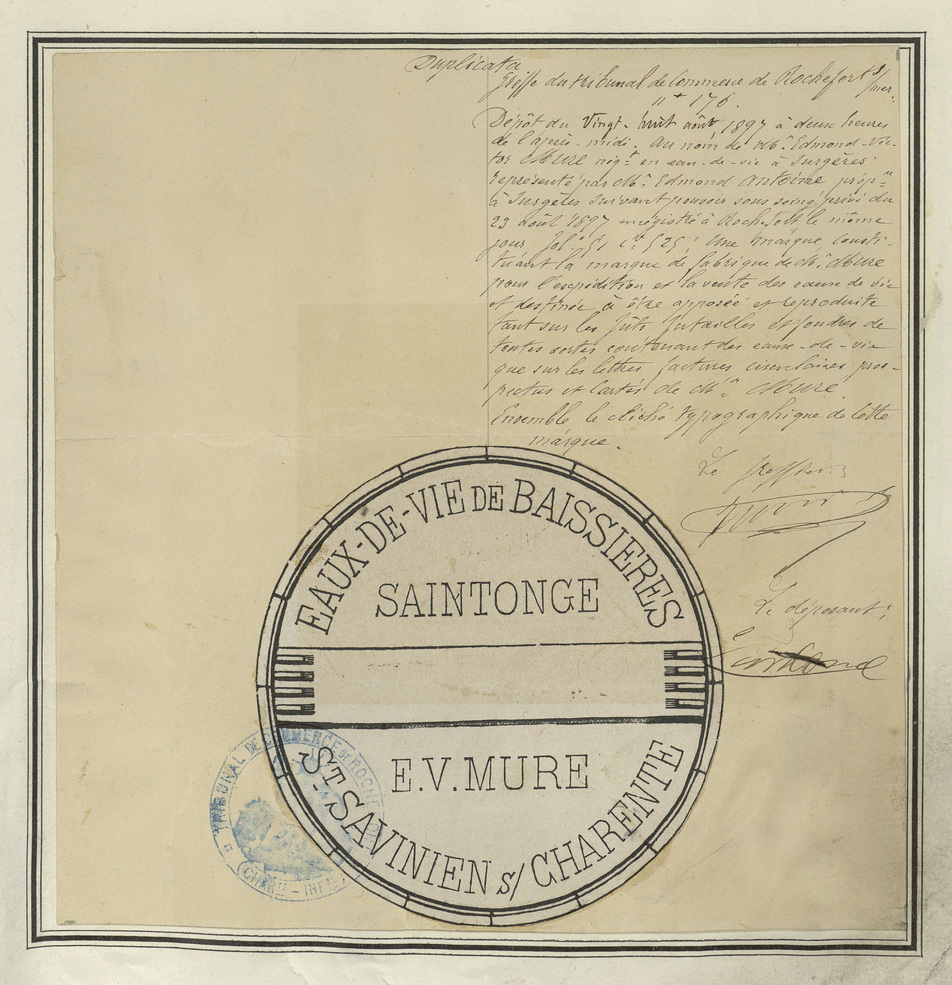 Duplicata
Greffe du tribunal de Commerce de Rochefort s/mer.
n° 176.
Dépôt du Vingt-huit août 1897 à deux heures
de l'après-midi. Au nom de Mr. Edmond-Vic-
tor Mure négt en eau-de-vie à Surgères
représenté par Mr. Edmond Antoine propre
à Surgères suivant pouvoir sous seing privé du
23 août 1897 enregistré à Rochefort le même
jour fol. 51 ce 525; Une marque, consti-
tuant la marque de fabrique de Mr. Mure
pour l'expédition et la vente des eaux de vie
et destinée à être apposée et reproduite
tant sur les fûts futailles et foudres de
toutes sortes contenant des eaux-de-vie
que sur les lettres factures circulaires pros-
pectus et cartes de Mr. Mure.
Ensemble le cliché typographique de cette
marque.
Le greffier
Le déposant;
EAUX-DE-VIE DE BAISSIERES
SAINTONGE
E.V.MURE
ST SAVINIEN S/ CHARENTE
TRIBUNAL DE COMMERCE DE ROCHEFORT
(CHARTE-INFRE)